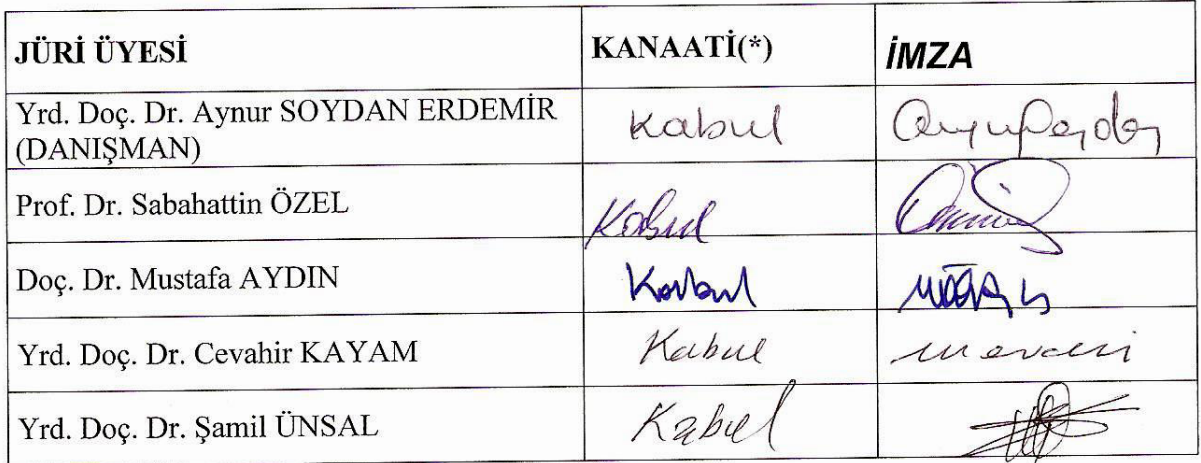 JÜRİ ÜYESİ KANAATİ(*) İMZA
Yrd. Doç. Dr. Aynur SOYDAN ERDEMİR
(DANIŞMAN) Kabul
Prof. Dr. Sabahattin ÖZEL Kabul
Doç. Dr. Mustafa AYDIN Kabul
Yrd. Doç. Dr. Cevahir KAYAM Kabul
Yrd. Doç. Dr. Şamil ÜNSAL Kabul